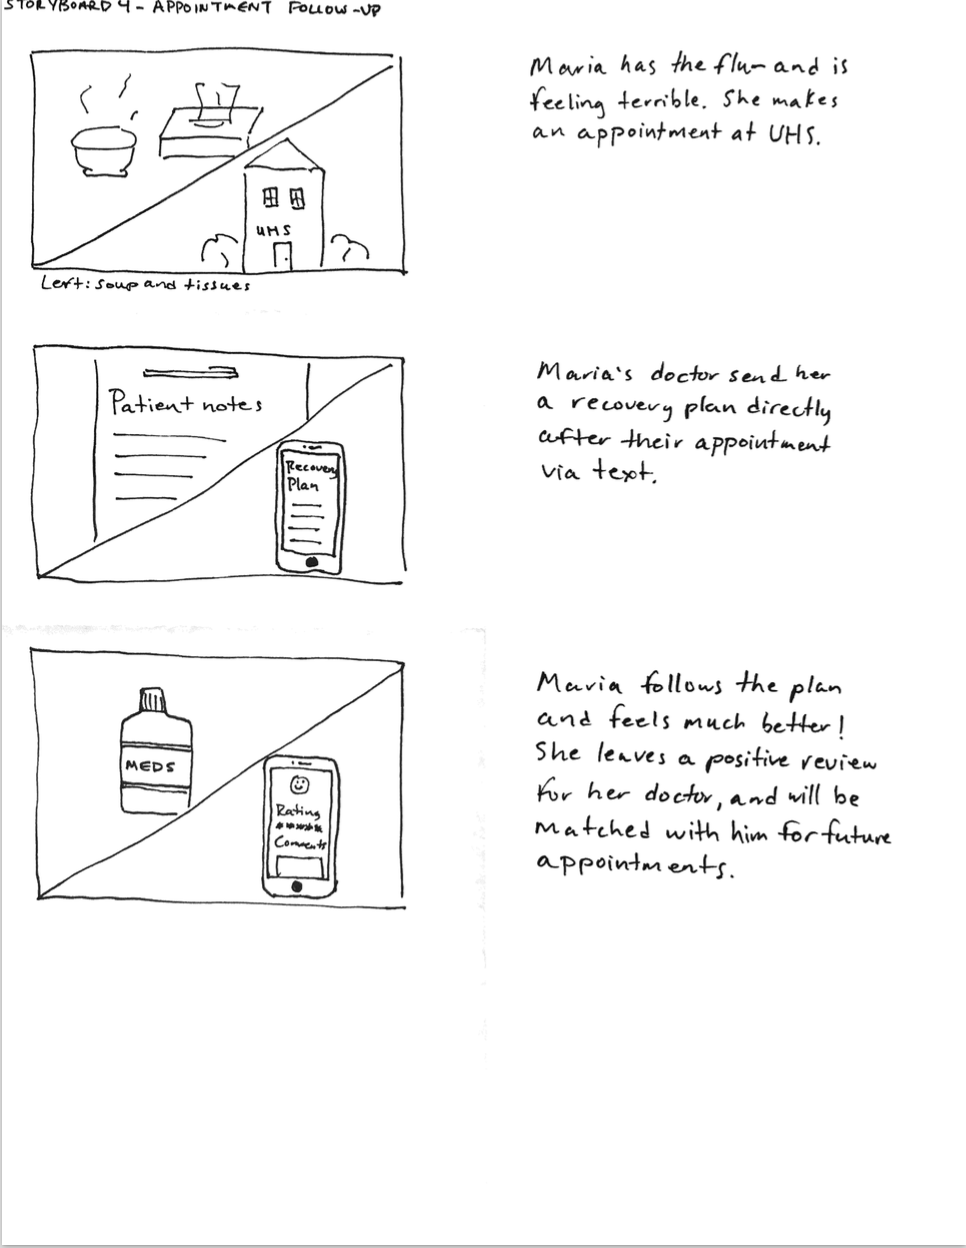 STORYBOARD 4 - APPOINTMENT FOLLOW-UP
UHS
Left: soup and tissues
Maria has the flu - and is
feeling terrible. She makes
an appointment at UHS.
Patient notes
Recovery
Plan
Maria's doctor send her
a recovery plan directly
after their appointment
via text.
MEDS
Rating
*****
Comments
Maria follows the plan
and feels much better!
She leaves a positive review
for her doctor, and will be
matched with him for future
appointments.